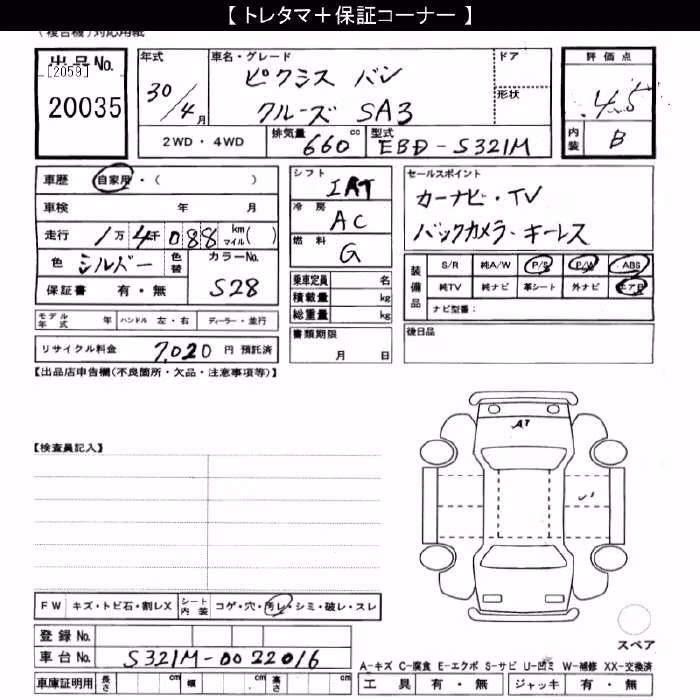 【 トレタマ＋保証コーナー 】
(複合機)対応用紙
出品No.
[2059]
20035
年式
30/4月
車名・グレード
ピクシス バン
クルーズ SA3
ドア
形状
評価点
4.5
内装
B
2WD・4WD
排気量
660 cc
型式
EBD-S321M
車歴 自家用・( )
車検 年 月
走行 1万4千088 km マイル( )
色 シルバー 色替 カラーNo.
S28
保証書 有・無
シフト
IAT
冷房
AC
燃料
G
セールスポイント
カーナビ・TV
バックカメラ・キーレス
装備品
S/R 純A/W P/S P/W ABS
純TV 純ナビ 革シート 外ナビ エアB
ナビ型番：
乗車定員 名
積載量 kg
総重量 kg
モデル年式 年 ハンドル 左・右 ディーラー・並行
リサイクル料金 7,020 円 預託済
書類期限
月 日
後日品
【出品店申告欄(不良箇所・欠品・注意事項等)】
A1
【検査員記入】
FW キズ・トビ石・割レX シート内装 コゲ・穴・汚レ・シミ・破レ・スレ
スペア
登録No.
車台No. S321M-0022016
A-キズ C-腐食 E-エクボ S-サビ U-凹ミ W-補修 XX-交換済
車庫証明用 長さ cm 幅 cm 高さ cm
工具 有・無 ジャッキ 有・無